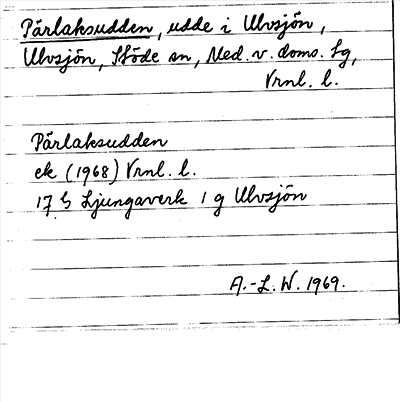 Pärlaksudden, udde i Ulvsjön,
Ulvsjön, Stöde sn, Med. v. doms. tg,
Vrnl. l.
Pärlaksudden
ek (1968) Vrnl. l.
17 G Ljungaverk 1 g Ulvsjön
A.-L. W. 1969.